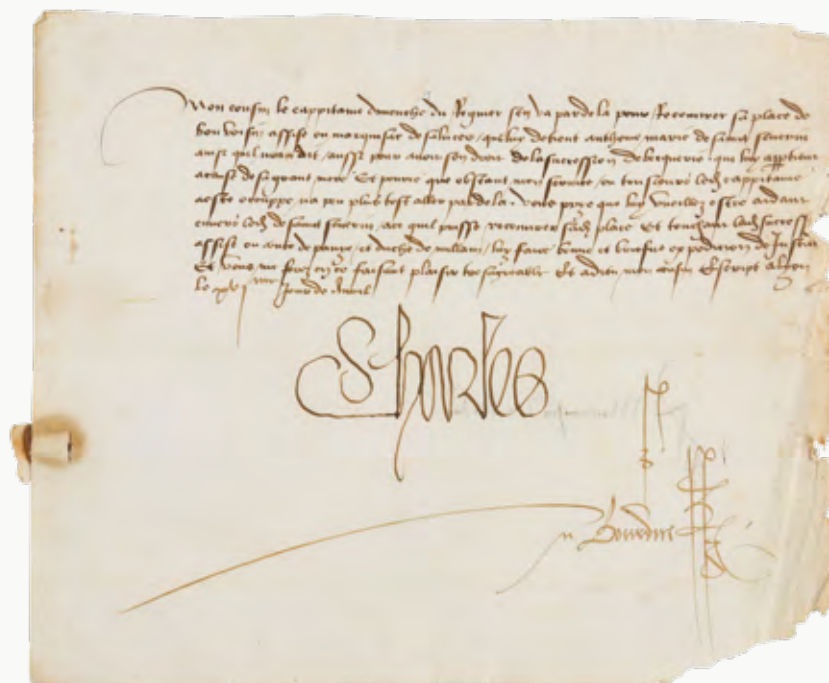 Mon cousin le cappitaine dimenche du Roquier sen va par dela pour Recouvrer sa place de
bon voisin assise ou marquisat de saluces que luy detient anthoine marie de saint severin
ainsi quil ma dit aussi pour avoir son droit de la succession de qui luy appartient
a cause de sa grant mere Et pource que obstant mon service ou tousiours led cappitaine
a este occuppe na peu plus tost aller par dela Vous prye que luy vueillez estre aidant
envers led de saint severin ace quil puisse recouvrer sad place Et touchant lad success
assise ou conte de pavye et duche de millan luy faire bonne et briefve expedicion de Justice
Et vous me ferez en ce faisant plaisir tresagreable Et adieu mon cousin Escript a lyon
le xvi me Jour de Avril
Charles